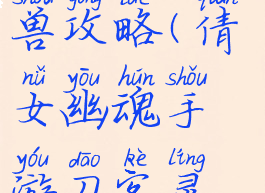 shòu gōng lüè qiàn
兽攻略(倩
nǚ yōu hún shǒu
女幽魂手
yóu dāo kè líng
游刀客灵